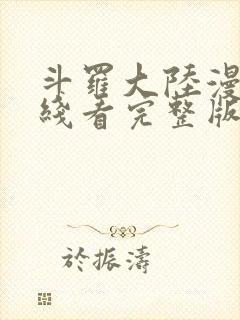 斗羅大陸漫
綫看完整版
於振濤